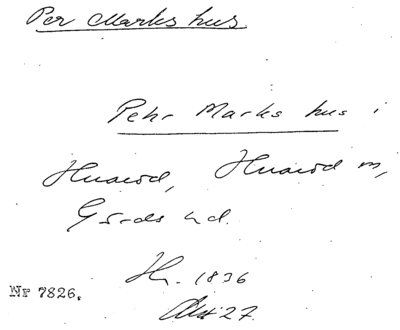 Per Marks hus
Pehr Marks hus i
Huaröd, Huaröd sn,
Gärds hd.
Hm. 1836
Akt 27.
Nr 7826.